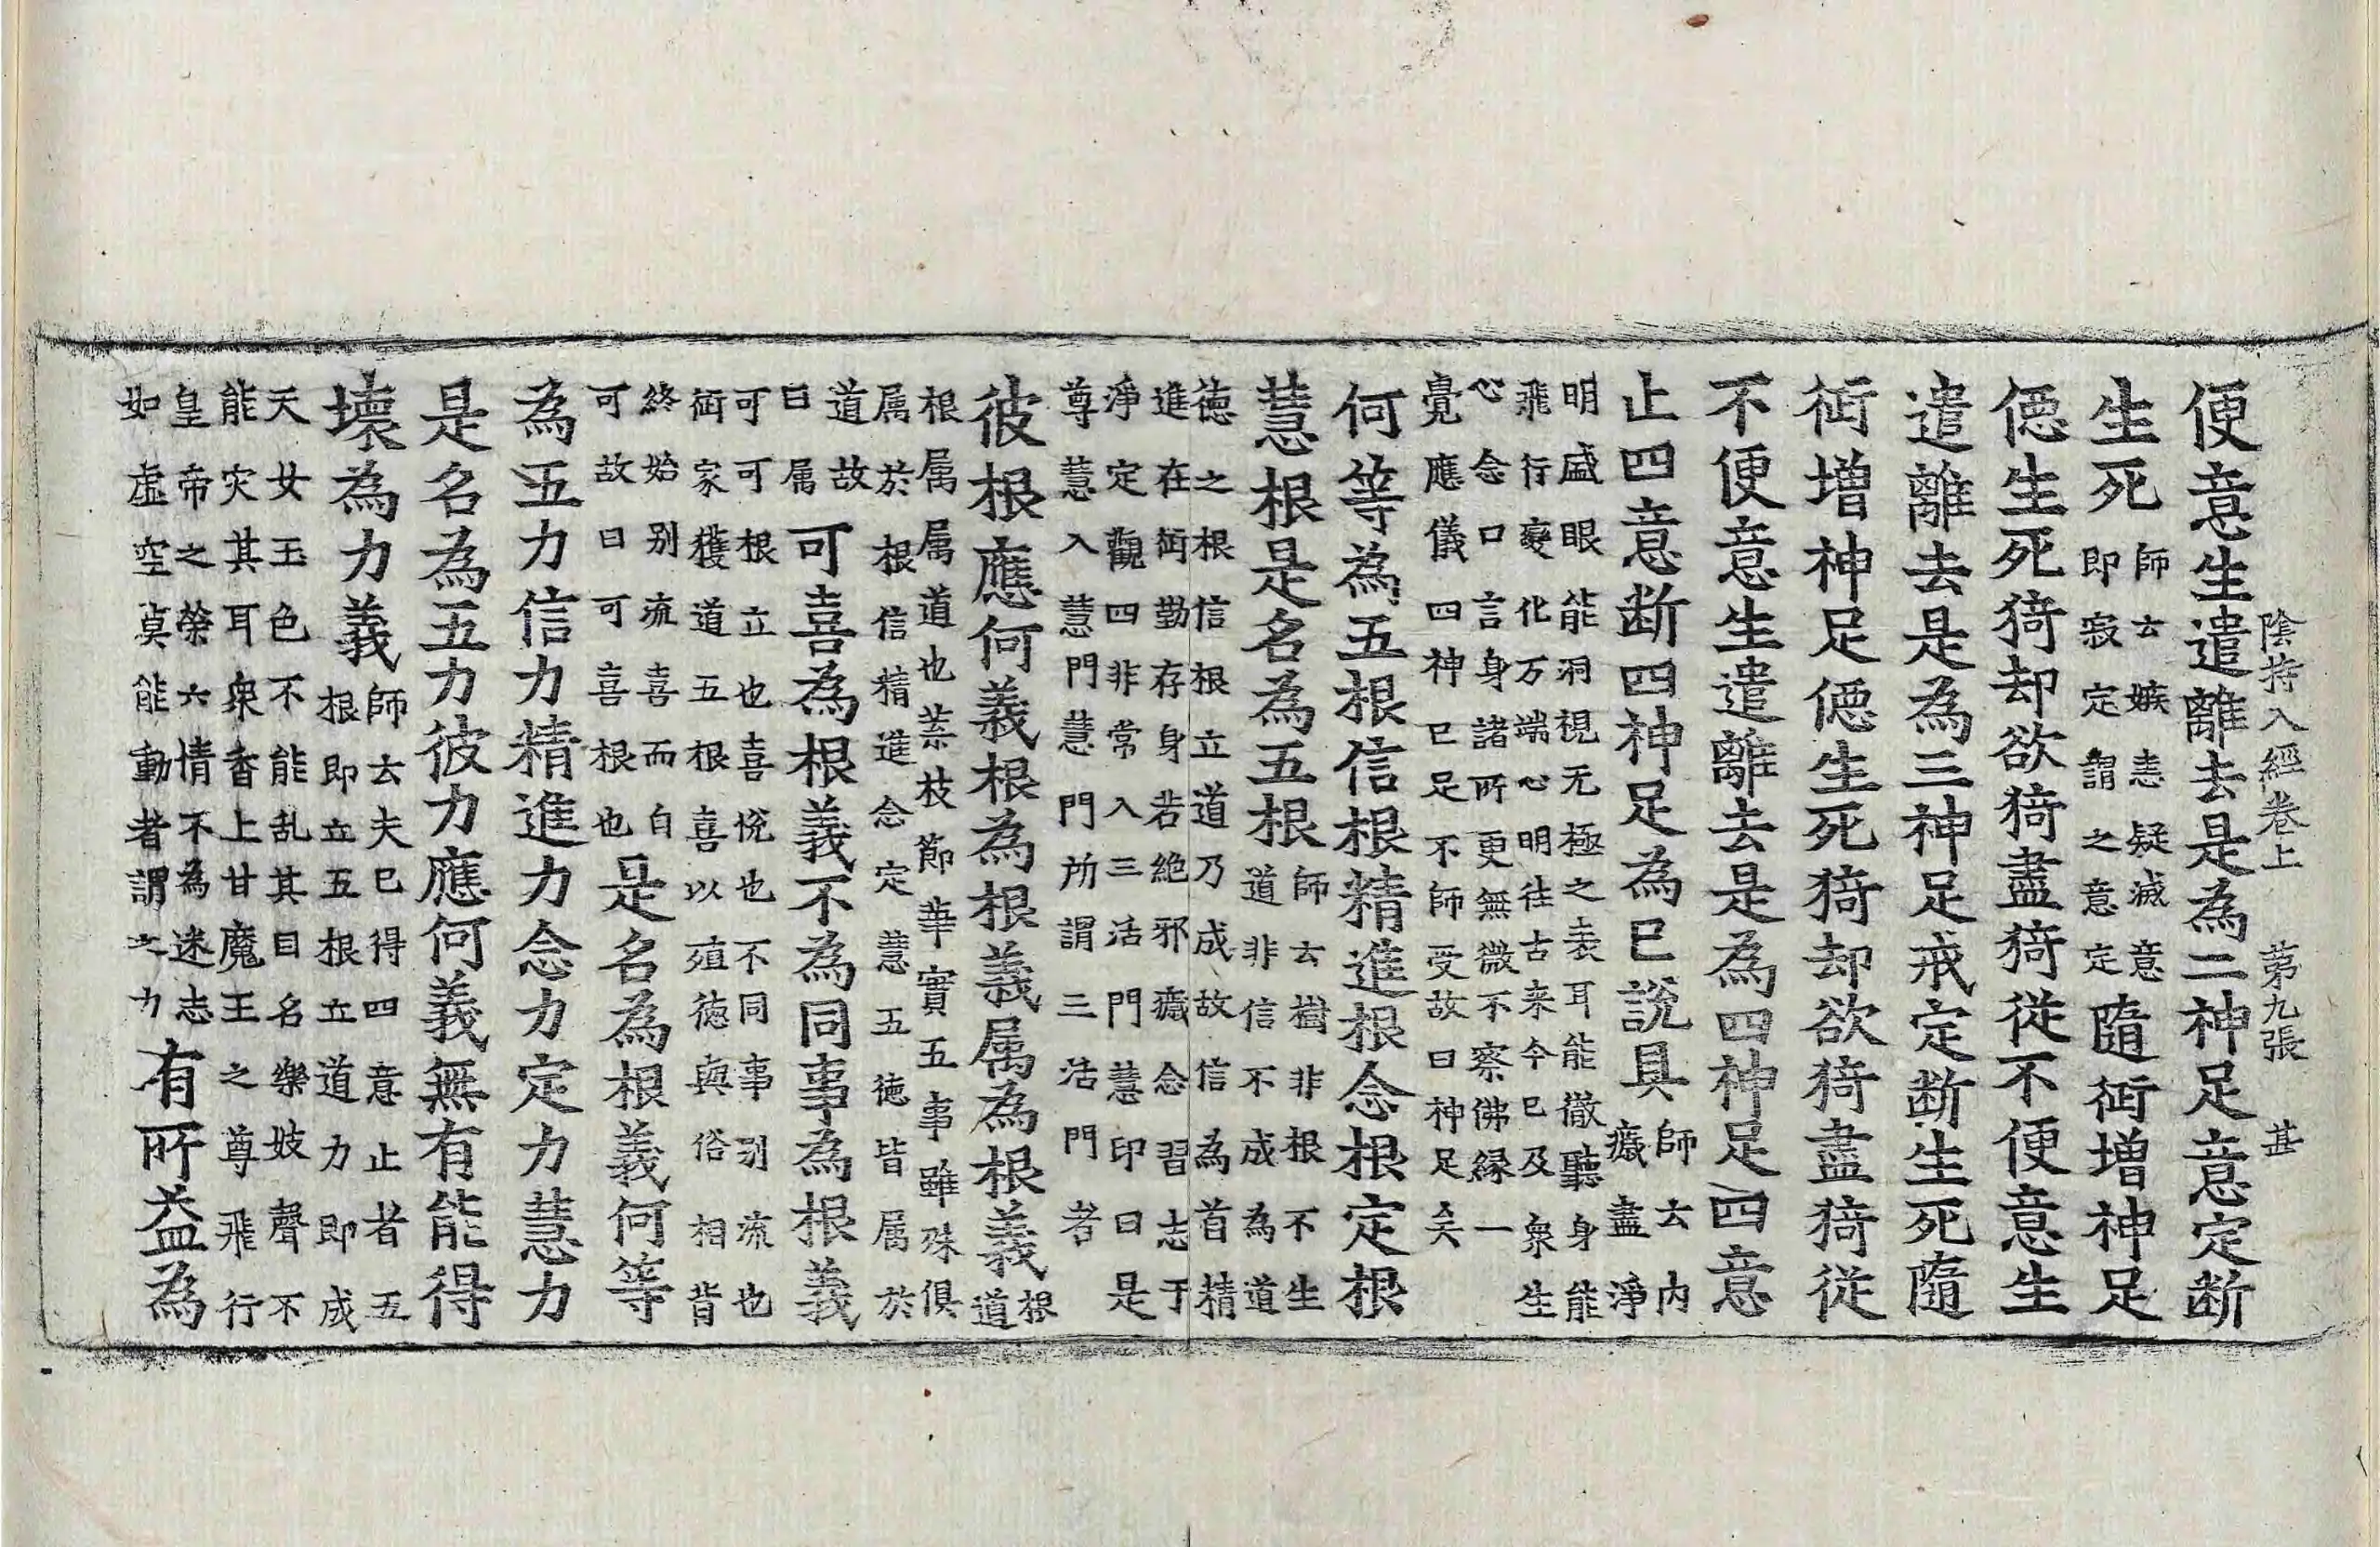 陰持入經卷上 第九張 甚
便意生遣離去是為二神足意定断
生死
師云嫉恚疑滅意
即寂定謂之意定
隨衜增神足
僫生死猗却欲猗盡猗從不便意生
遣離去是為三神足戒定断生死隨
衜增神足僫生死猗却欲猗盡猗從
不便意生遣離去是為四神足四意
止四意断四神足為已說具
師云内
癡盡淨
明盛眼能洞視无極之表耳能徹聽身能
飛行變化万端心明往古来今已及衆生
心念口言身諸所更無微不察佛縁一
覺應儀四神已足不師受故曰神足矣
何等為五根信根精進根念根定根
慧根是名為五根
師云樹非根不生
道非信不成為道
徳之根信根立道乃成故信為首精
進在衜勤存身若絶邪癡念習志于
淨定觀四非常入三活門慧印曰是
尊慧入慧門慧門所謂三活門者
彼根應何義根為根義属為根義
根
道
根属属道也枝節華實五事雖殊俱
属於根信精進念定慧五徳皆属於
道故
曰属
可喜為根義不為同事為根義
可可根立也喜悅也不同事别流也
衜家獲道五根喜以殖徳與俗相背
終始别流喜而自
可故曰可喜根也
是名為根義何等
為五力信力精進力念力定力慧力
是名為五力彼力應何義無有能得
壞為力義
師云夫已得四意止者五
根即立五根立道力即成
天女玉色不能乱其目名樂妓聲不
能灾其耳衆香上甘魔王之尊飛行
皇帝之榮六情不為迷志
如虛空莫能動者謂之力
有所益為